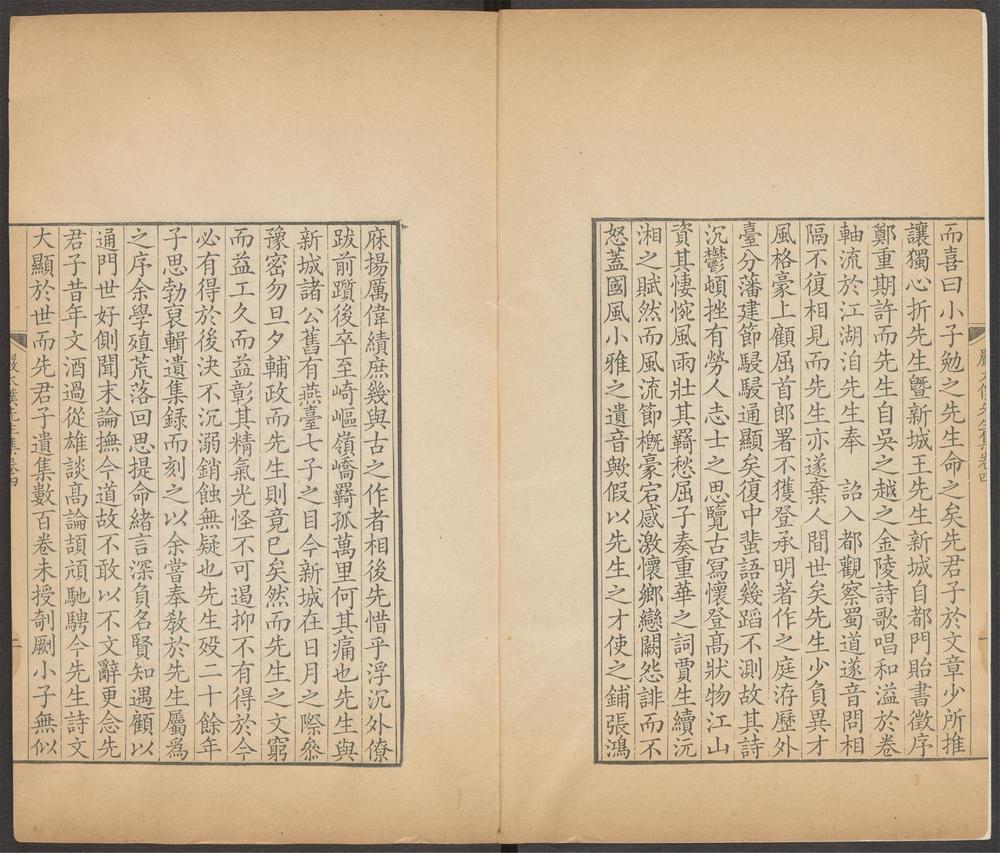 而喜曰小子勉之先生命之矣先君子於文章少所推
讓獨心折先生曁新城王先生新城自都門貽書徵序
鄭重期許而先生自吳之越之金陵詩歌唱和溢於卷
軸流於江湖洎先生奉　詔入都觀察蜀道遂音問相
隔不復相見而先生亦遂棄人間世矣先生少負異才
風格豪上顧屈首郎署不獲登承明著作之庭洊歷外
臺分藩建節駸駸通顯矣復中蜚語幾蹈不測故其詩
沉鬱頓挫有勞人志士之思覽古冩懷登高狀物江山
資其悽惋風雨壯其羇愁屈子奏重華之詞賈生續沅
湘之賦然而風流節槪豪宕感激懷鄉戀闕怨誹而不
怒蓋國風小雅之遺音歟假以先生之才使之鋪張鴻
庥揚厲偉績庶幾與古之作者相後先惜乎浮沉外僚
跋前躓後卒至崎嶇嶺嶠羇孤萬里何其痛也先生與
新城諸公舊有燕臺七子之目今新城在日月之際叅
豫密勿旦夕輔政而先生則竟已矣然而先生之文窮
而益工久而益彰其精氣光怪不可遏抑不有得於今
必有得於後決不沉溺銷蝕無疑也先生歿二十餘年
子思勃裒輯遺集録而刻之以余嘗奉敎於先生屬為
之序余學殖荒落回思提命緒言深負名賢知遇顧以
通門世好側聞末論撫今道故不敢以不文辭更念先
君子昔年文酒過從雄談高論頡頏馳騁今先生詩文
大顯於世而先君子遺集數百卷未授剞劂小子無似